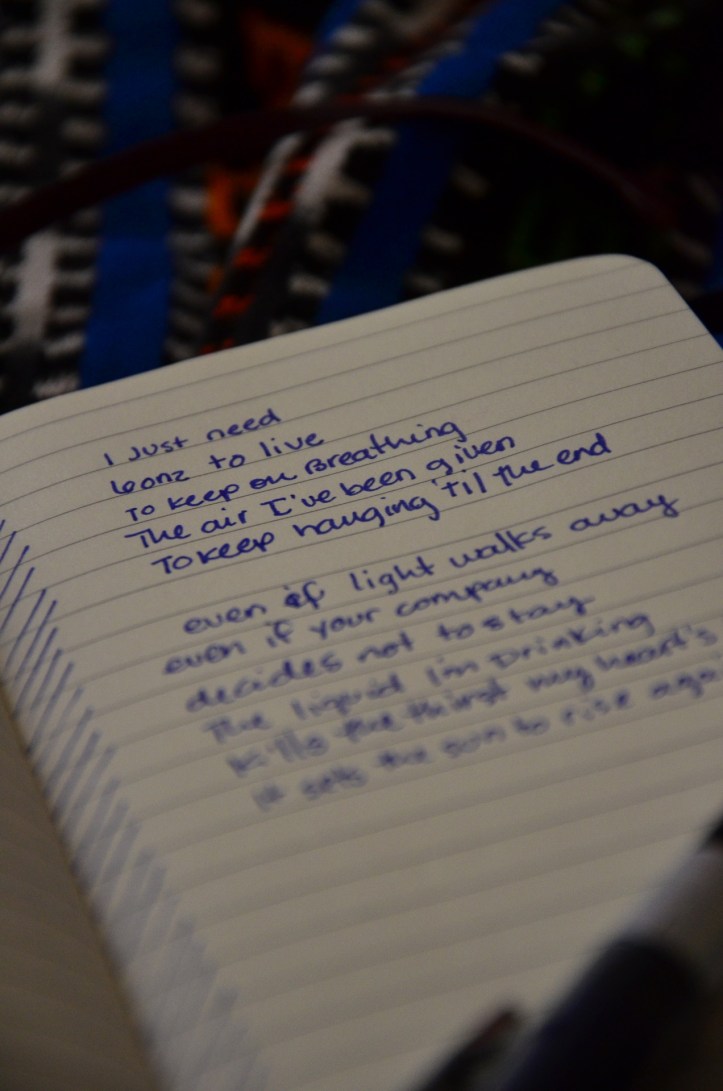 I Just need
to live
To keep on Breathing
The air I've been given
To keep hanging 'til the end
even if light walks away
even if your company
decides not to stay
The liquid I'm Drinking
kills the thirst my heart's
it sets the sun to rise